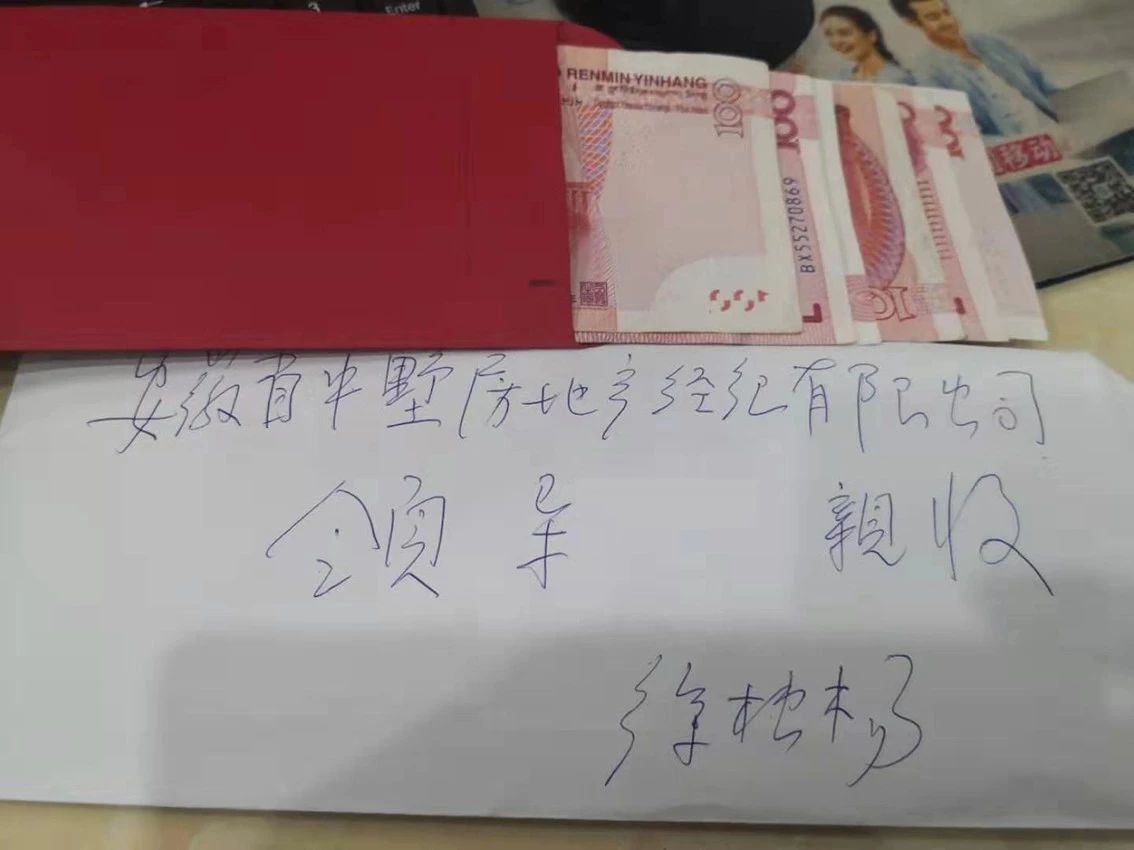 Enter
3
RENMIN YINHANG
100
100
BX55270869
移动
安徽省中墅房地产经纪有限公司
领导 親收
徐